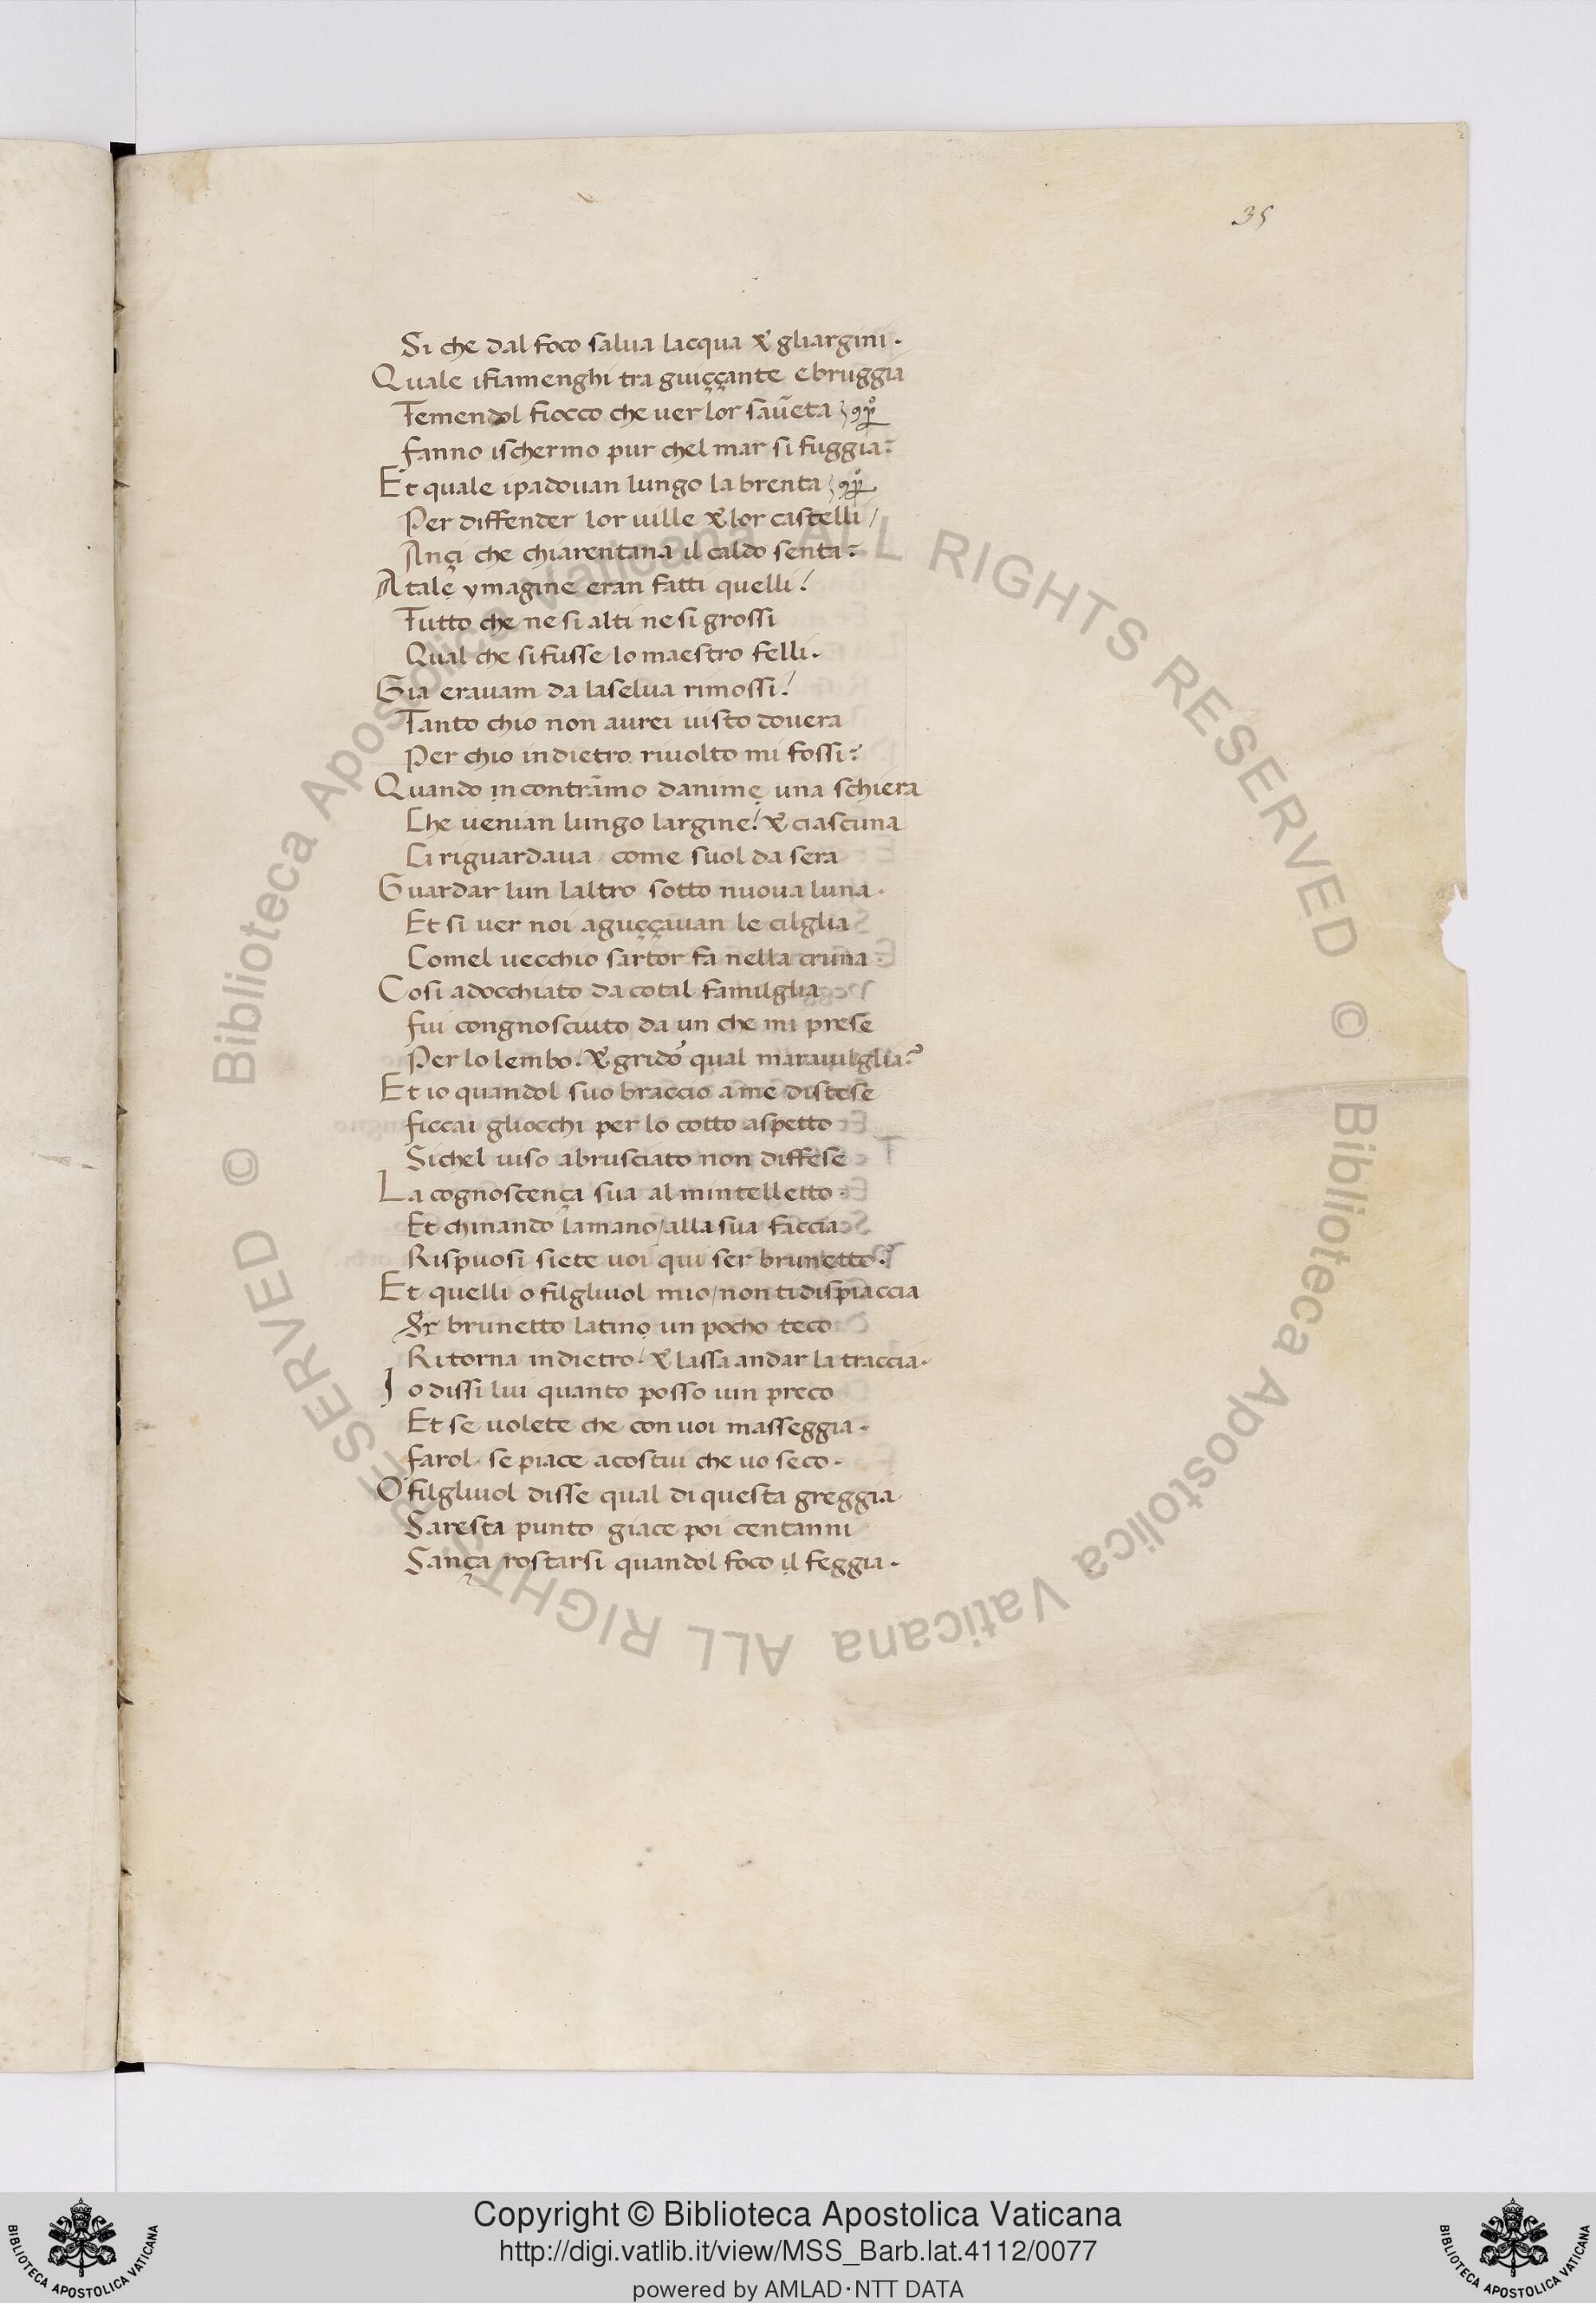 35
Si che dal foco salua lacqua & gliargini.
Quale ifiamenghi tra guiççante ebruggia
Temendol fiocco che uer lor sauẽta
fanno ischermo pur chel mar si fuggia:
Et quale ipadouan lungo la brenta
Per diffender lor uille & lor castelli/
Ançi che chiarentana il caldo senta:
Atale ymagine eran fatti quelli!
Tutto che ne si alti ne si grossi
Qual che si fusse lo maestro felli.
Gia erauam da laselua rimossi!
Tanto chio non aurei uisto douera
Per chio indietro riuolto mi fossi:
Quando incontrãmo danime una schiera
Che uenian lungo largine! & ciascuna
Ci riguardaua/ come suol da sera
Guardar lun laltro sotto nuoua luna.
Et si uer noi aguççauan le cilglia
Comel uecchio sartor fa nella cruna.
Cosi adocchiato da cotal familglia
fui congnosciuto da un che mi prese
Per lo lembo. & grido qual marauilglia?
Et io quandol suo braccio ame distese
ficcai gliocchi per lo cotto aspetto
Sichel uiso abrusciato non diffese
La cognoscença sua al mintelletto.
Et chinando lamano/ alla sua faccia
Rispuosi siete uoi qui ser brunetto?
Et quelli o filgliuol mio/ non ti dispiaccia
Sr brunetto latino un pocho teco
Ritorna indietro! & lassa andar la traccia.
Io dissi lui quanto posso uin preco
Et se uolete che con uoi masseggia.
farol se piace acostui che uo seco.
O filgliuol disse qual di questa greggia
Saresta punto giace poi centanni
Sança rostarsi quandol foco il feggia.
© Biblioteca Apostolica Vaticana ALL RIGHTS RESERVED
© Biblioteca Apostolica Vaticana ALL RIGHTS RESERVED
Copyright © Biblioteca Apostolica Vaticana
http://digi.vatlib.it/view/MSS_Barb.lat.4112/0077
powered by AMLAD·NTT DATA
BIBLIOTECA APOSTOLICA VATICANA
BIBLIOTECA APOSTOLICA VATICANA